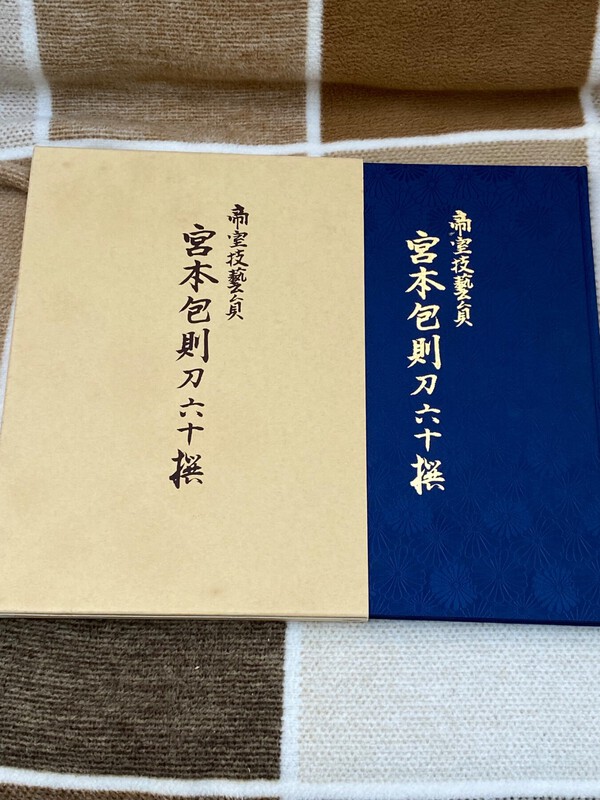 帝室技藝員
宮本包則刀六十撰
帝室技藝員
宮本包則刀六十撰